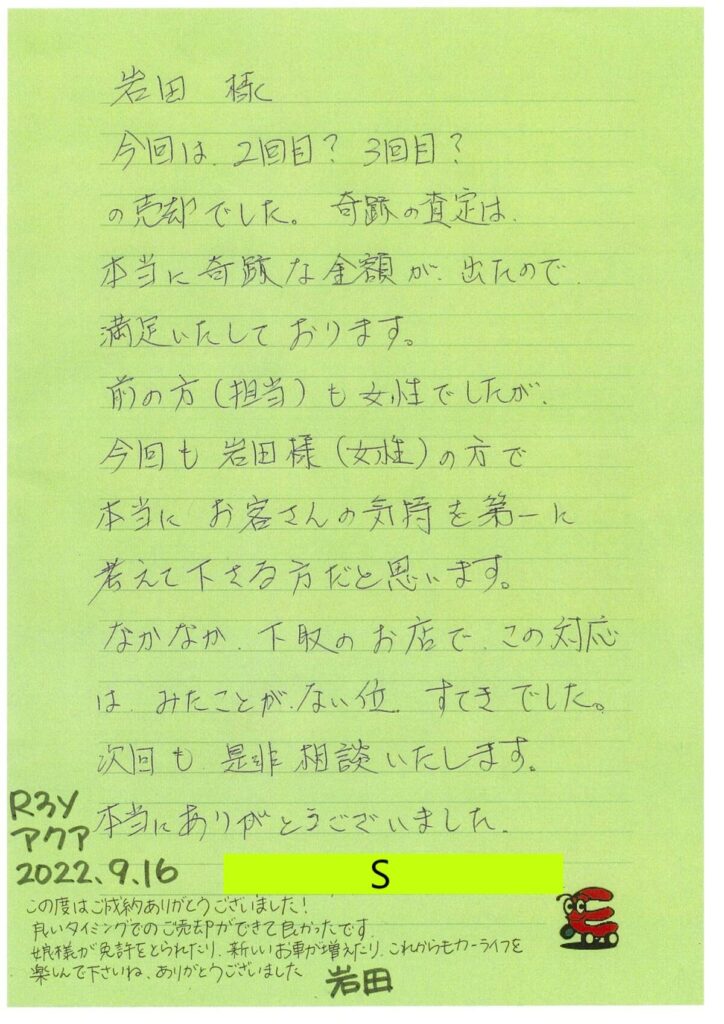 岩田 様
今回は、2回目? 3回目?
の売却でした。奇跡の査定は、
本当に奇跡な金額が、出たので、
満足いたしております。
前の方(担当)も女性でしたが、
今回も 岩田様(女性)の方で
本当に お客さんの気持を第一に
考えて下さる方だと思います。
なかなか、下取のお店で、この対応
は、みたことが、ない位、すてきでした。
次回も、是非相談いたします。
本当にありがとうございました。
R3Y
アクア
2022.9.16
S
この度はご成約ありがとうございました!
良いタイミングでのご売却ができて良かったです。
娘様が免許をとられたり、新しいお車が増えたり、これからもカーライフを
楽しんで下さいね、ありがとうございました
岩田